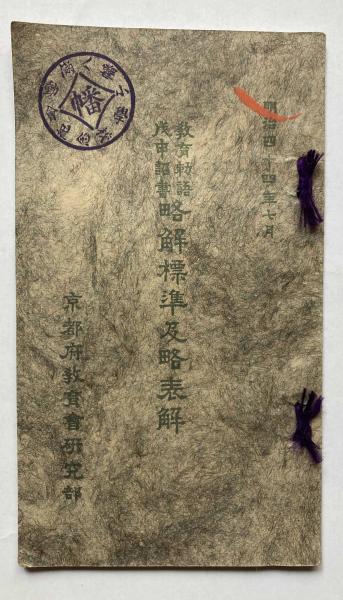 明治四十四年七月
教育勅語
戊申詔書
略解標準及略表解
京都府教育會研究部
幡